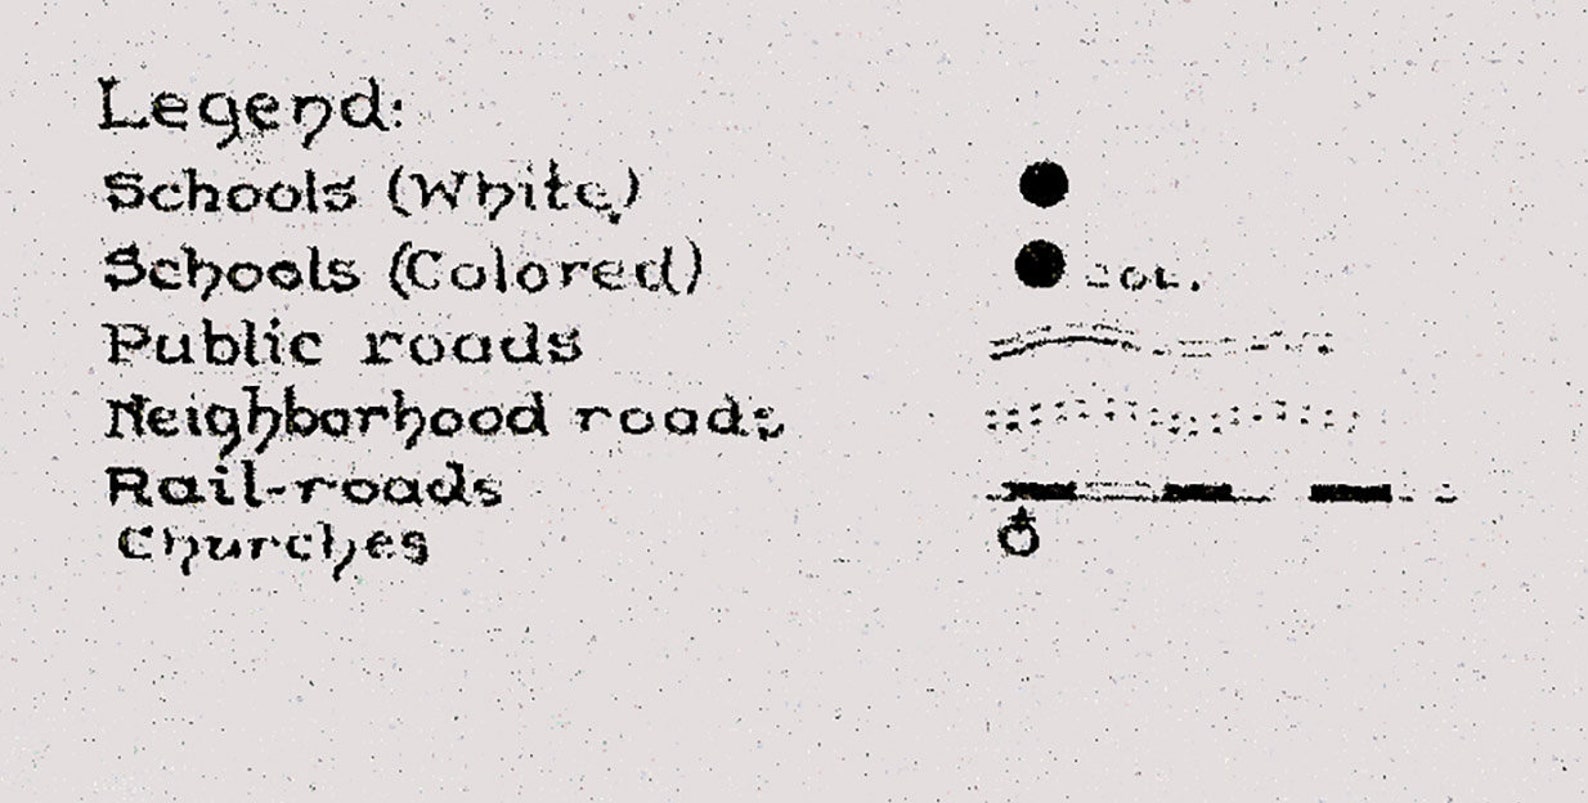 Legend:
Schools (White)
Schools (Colored) Col.
Public roads
Neighborhood roads
Rail-roads
Churches